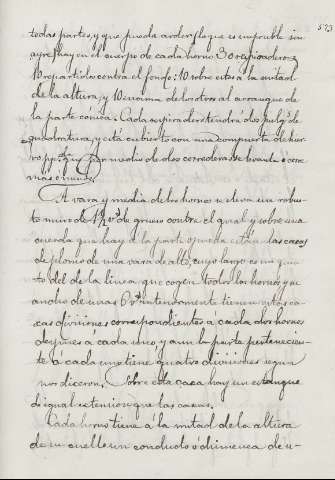 573
todas partes, y que pueda arder, lo que es imposible sin
ayre, hay en el cuerpo de cada horno 30 respiraderos
10 repartidos contra el fondo: 10 sobre estos á la mitad
de la altura; y 10 encima de los otros al arranque de
la parte cónica. Cada respiradero tendrá dos pulg.s de
quadratura, y está cubierto con una compuerta de hier-
ro p.a que por medio de dos correderas se levante o cierre
mas o menos.
A vara y media de los hornos se eleva un robus-
to muro de 1½ v.s de grueso contra el qual y sobre una
que hay á la parte opuesta están las casas
de plomo de una vara de alto, cuyo largo es un quar-
to del de la linea que cogen todos los hornos y su
ancho de unas 6 v.s interiormente tienen estas ca-
xas divisiones correspondientes á cada dos hornos
despues á cada uno y aun la parte pertenecien-
te á cada uno tiene quatro divisiones segun
nos dixeron. Sobre esta caxa hay un estanque
de igual extension que las caxas.
Cada horno tiene á la mitad de la altura
de su cuello un conducto o chimenea de u-